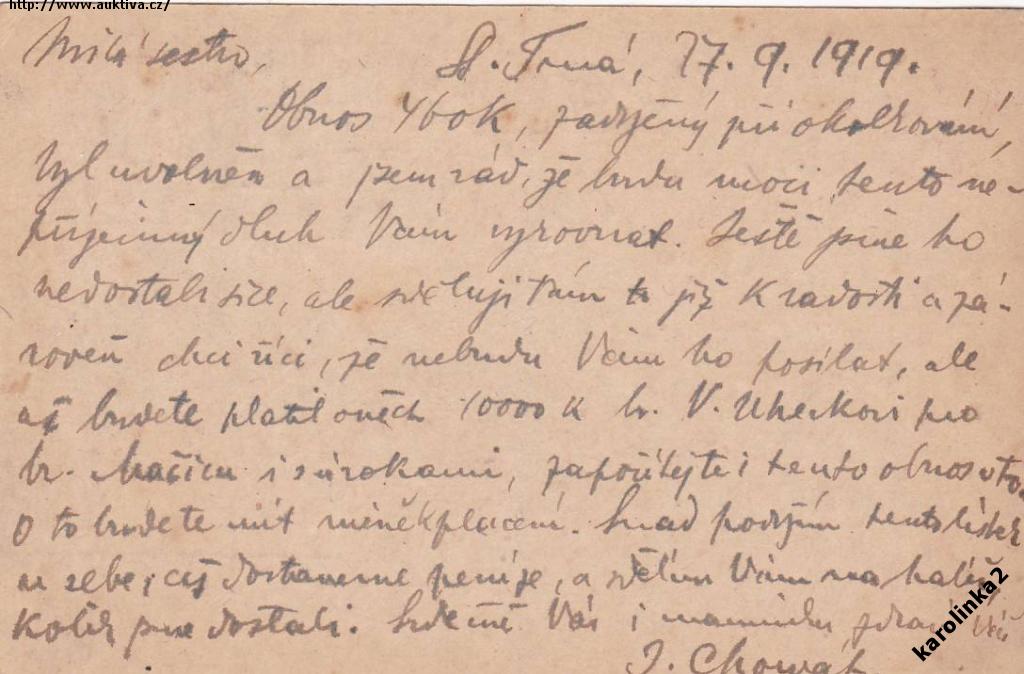 http://www.auktiva.cz/
Milá sestro,
St. Trná, 27. 9. 1919.
Obnos 460K, zadržený při okolkování,
byl uvolněn a jsem rád, že budu moci tento ne-
příjemný dluh Vám vyrovnat. Ještě jsme ho
nedostali sice, ale sděluji Vám to již k radosti a zá-
roveň chci říci, že nebudu Vám ho posílat, ale
až budete platit oněch 10000 K br. V. Uherkovi pro
br. i s úrokami, započítejte i tento obnos do to.
O to budete mít méně k placení. Snad podržím tento lístek
u sebe, až dostaneme peníze, a sdělím Vám na haléř,
kolik jsme dostali. Srdečně Vás i maminku zdraví Váš
J. Chowát
karolinka2